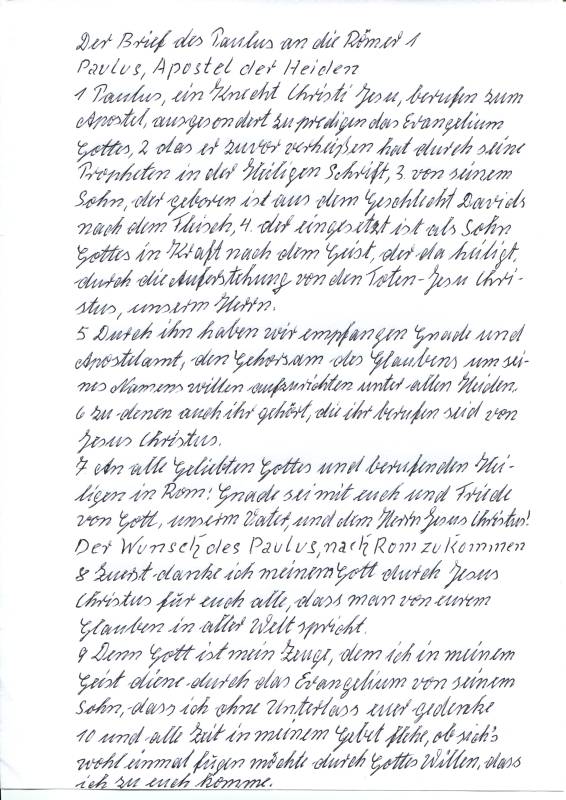 Der Brief des Paulus an die Römer 1
Paulus, Apostel der Heiden
1 Paulus, ein Knecht Christi Jesu, berufen zum
Apostel, ausgesondert zu predigen das Evangelium
Gottes, 2 das er zuvor verheißen hat durch seine
Propheten in der Heiligen Schrift, 3 von seinem
Sohn, der geboren ist aus dem Geschlecht Davids
nach dem Fleisch, 4 der eingesetzt ist als Sohn
Gottes in Kraft nach dem Geist, der da heiligt,
durch die Auferstehung von den Toten - Jesu Chri-
stus, unserm Herrn.
5 Durch ihn haben wir empfangen Gnade und
Apostelamt, den Gehorsam des Glaubens um sei-
nes Namens willen aufzurichten unter allen Heiden,
6 zu denen auch ihr gehört, die ihr berufen seid von
Jesus Christus.
7 An alle Geliebten Gottes und berufenden Hei-
ligen in Rom: Gnade sei mit euch und Friede
von Gott, unserm Vater, und dem Herrn Jesus Christus!
Der Wunsch des Paulus, nach Rom zu kommen
8 Zuerst danke ich meinem Gott durch Jesus
Christus für euch alle, dass man von eurem
Glauben in aller Welt spricht.
9 Denn Gott ist mein Zeuge, dem ich in meinem
Geist diene durch das Evangelium von seinem
Sohn, dass ich ohne Unterlass euer gedenke
10 und alle Zeit in meinem Gebet flehe, ob sich's
wohl einmal fügen möchte durch Gottes Willen, dass
ich zu euch komme.